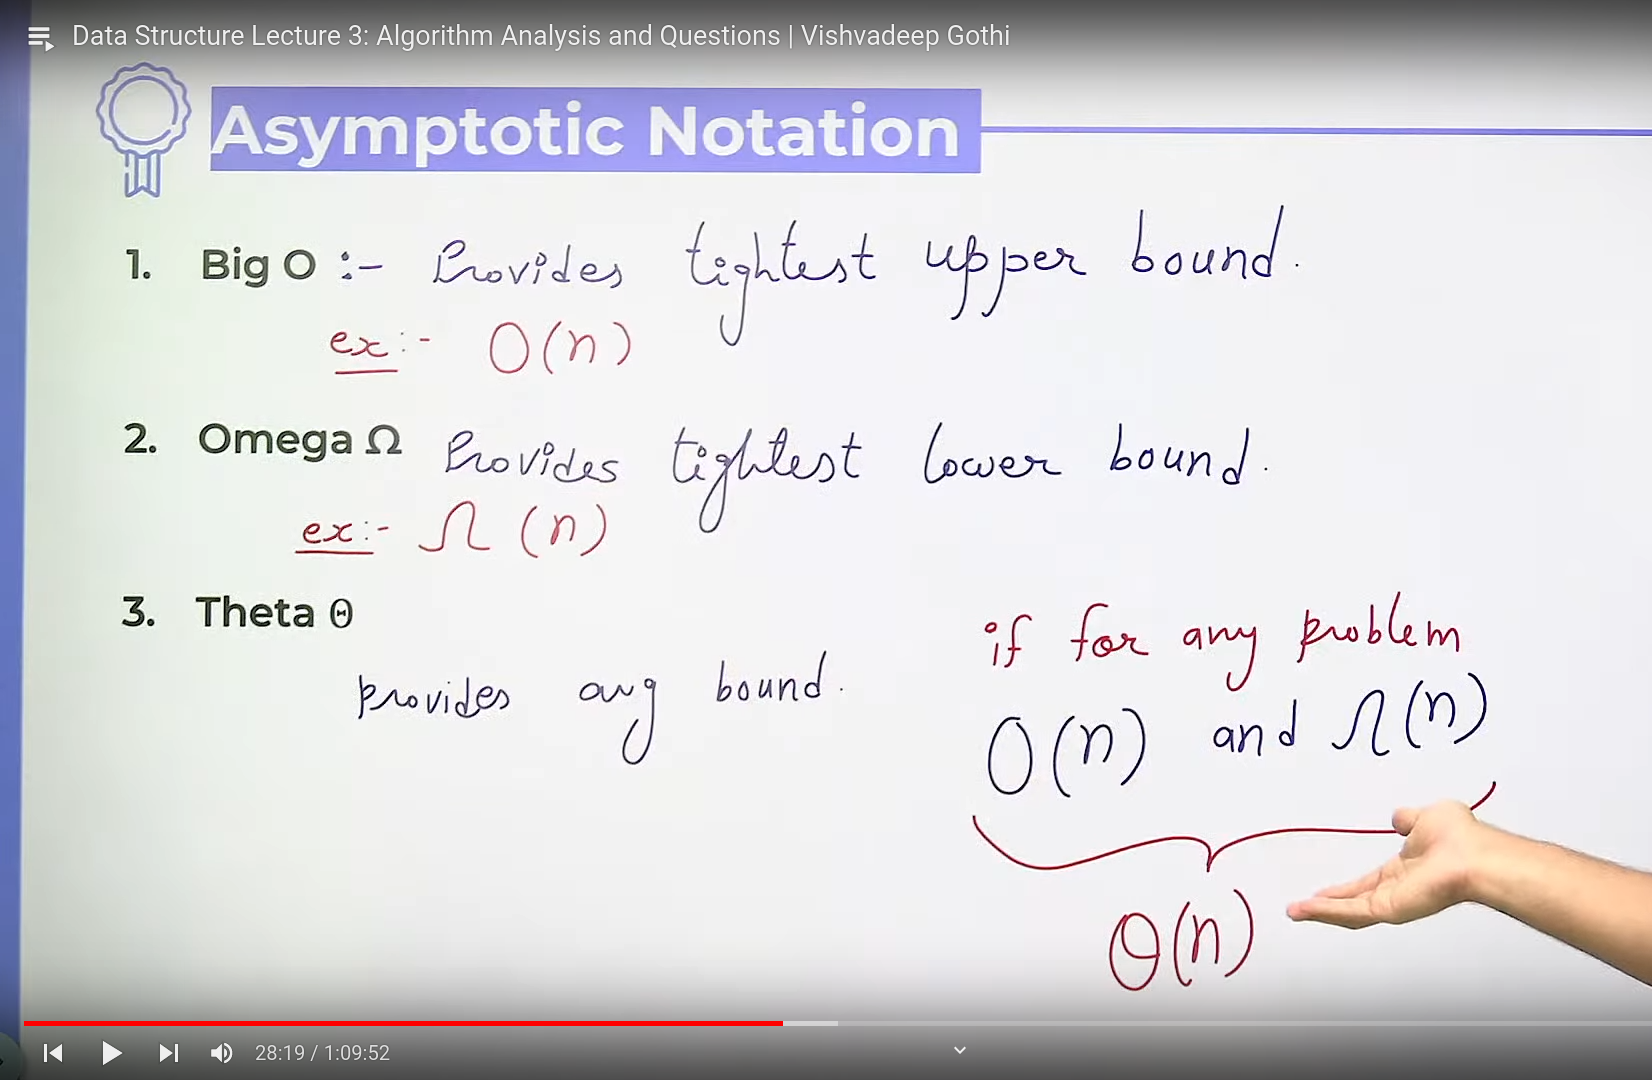 Data Structure Lecture 3: Algorithm Analysis and Questions | Vishvadeep Gothi
Asymptotic Notation
1. Big O :- Provides tightest upper bound.
ex:- O(n)
2. Omega Ω Provides tightest lower bound.
ex:- Ω(n)
3. Theta Θ
provides avg bound.
if for any problem
O(n) and Ω(n)
Θ(n)
28:19 / 1:09:52